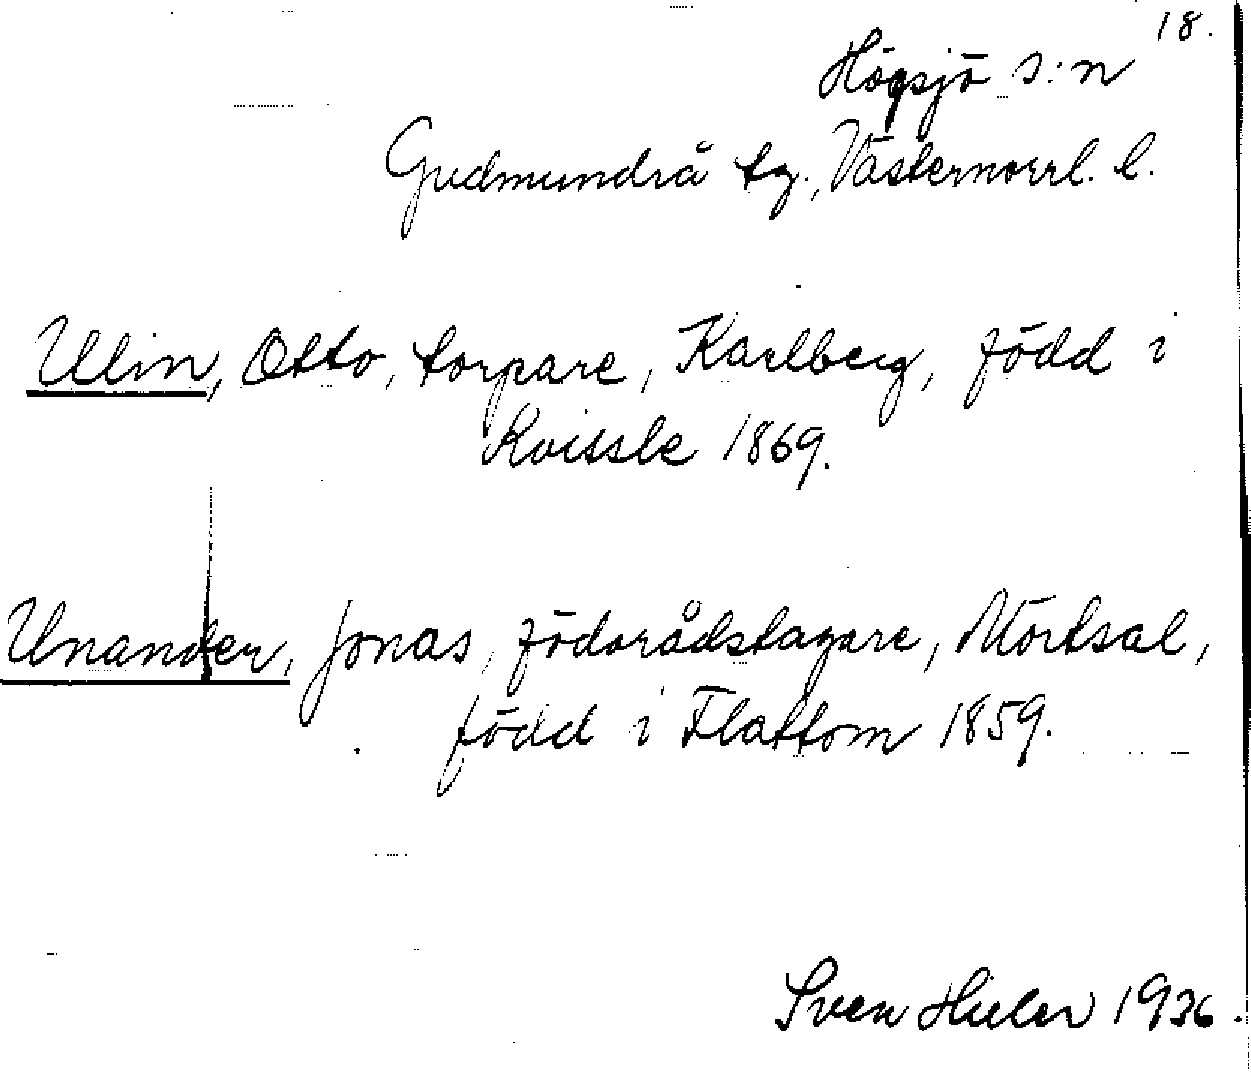 18.
Högsjö s:n
Gudmundrå tg., Västernorrl. l.
Ulin, Otto, torpare, Karlberg, född i
Kvissle 1869.
Unander, Jonas, födorådstagare, Mörtsal,
född i Flattom 1859.
Sven Hieler 1936.